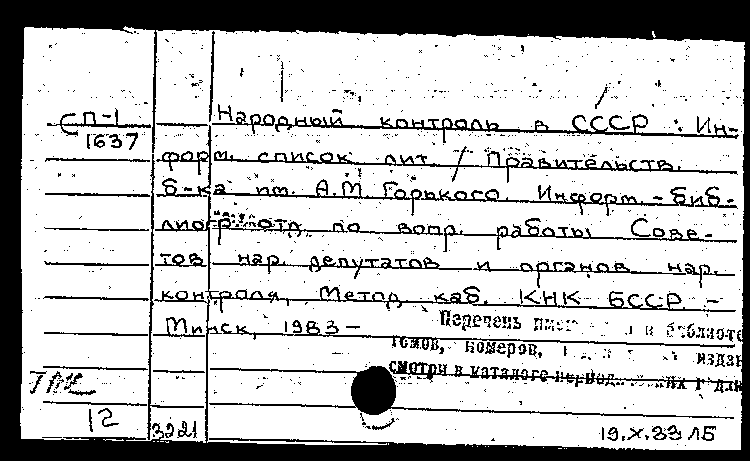 СП-1
1637
Народный контроль в СССР : Ин-
форм. список лит. / Правительств.
б-ка им. А.М. Горького. Информ.-биб-
лиогр. отд. по вопр. работы Сове-
тов нар. депутатов и органов нар.
контроля, Метод. каб. КНК БССР. -
Минск, 1983 -
Перечень в библиоте
томов, номеров, издан
смотри в каталоге
12
3221
19.X.83 ЛБ